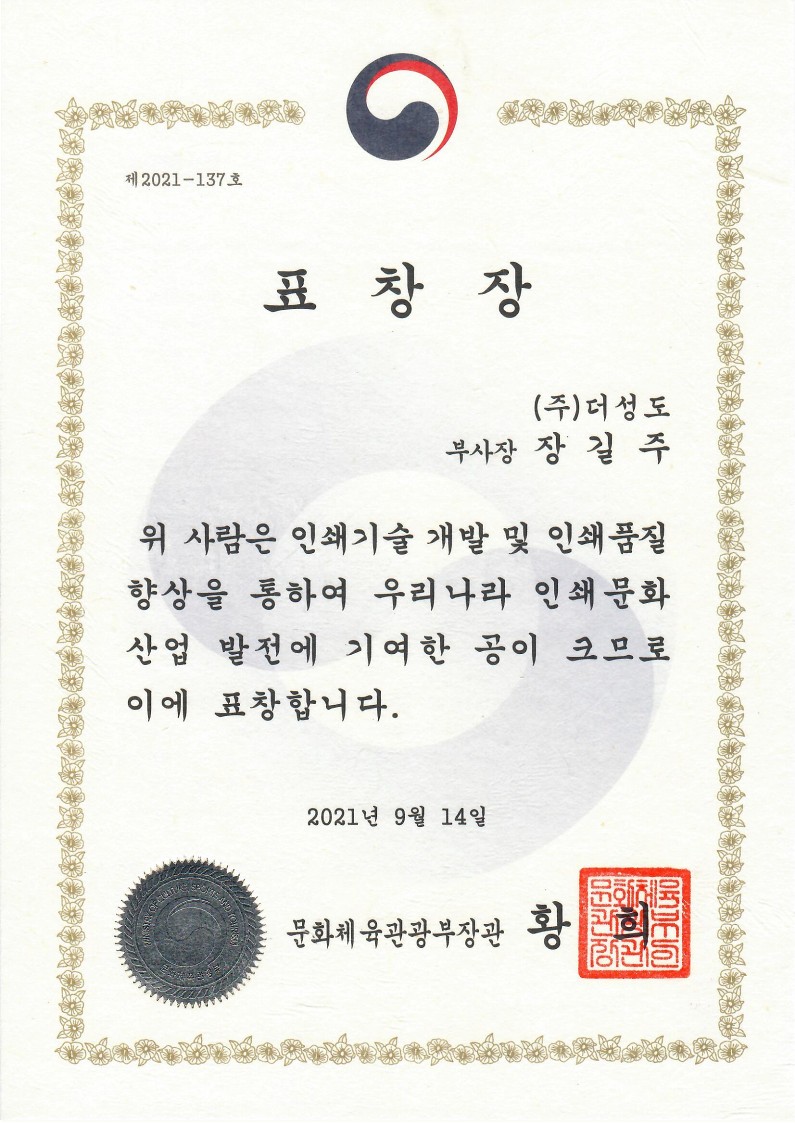 제2021-137호
표 창 장
(주)더성도
부사장 장 길 주
위 사람은 인쇄기술 개발 및 인쇄품질
향상을 통하여 우리나라 인쇄문화
산업 발전에 기여한 공이 크므로
이에 표창합니다.
2021년 9월 14일
문화체육관광부장관 황 희